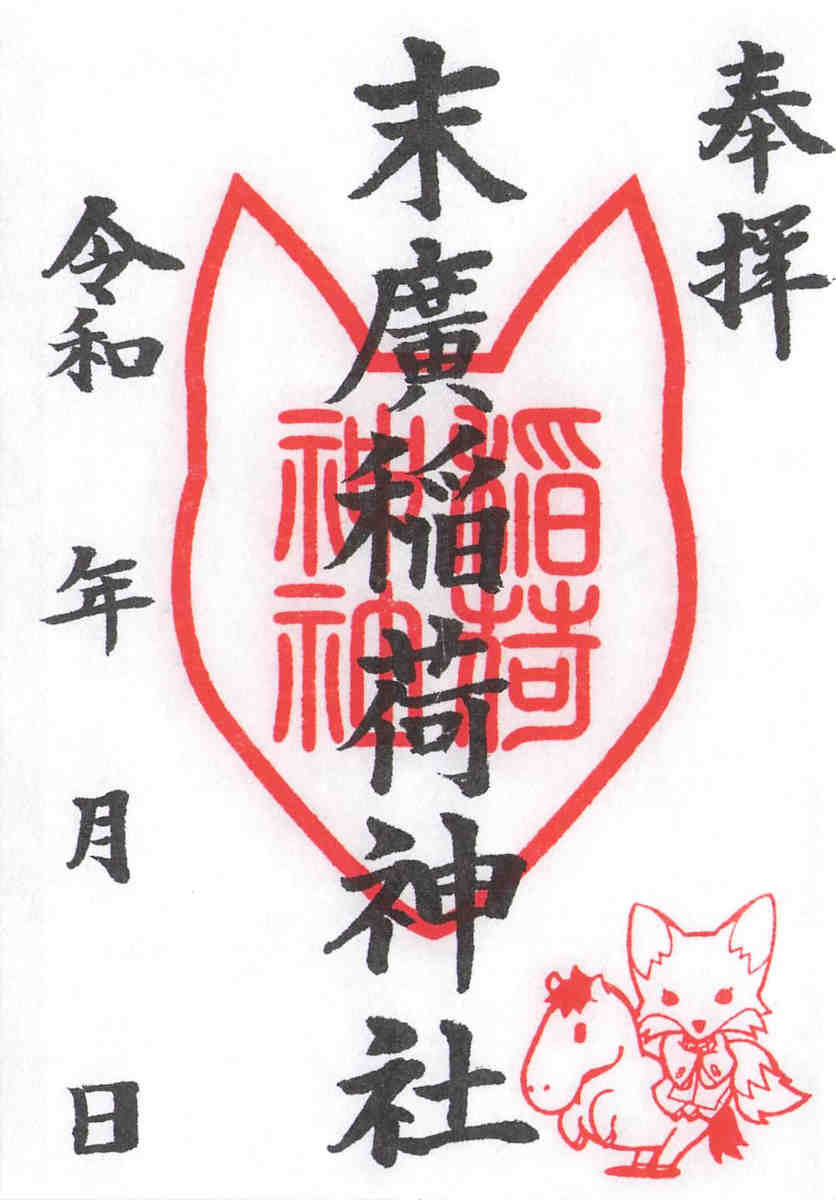 奉拝
末廣稲荷神社
稲荷
神社
令和 年 月 日